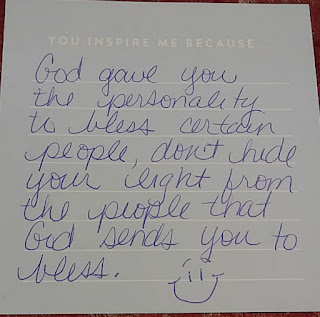 YOU INSPIRE ME BECAUSE
God gave you
the personality
to bless certain
people, don't hide
your light from
the people that
God sends you to
bless.